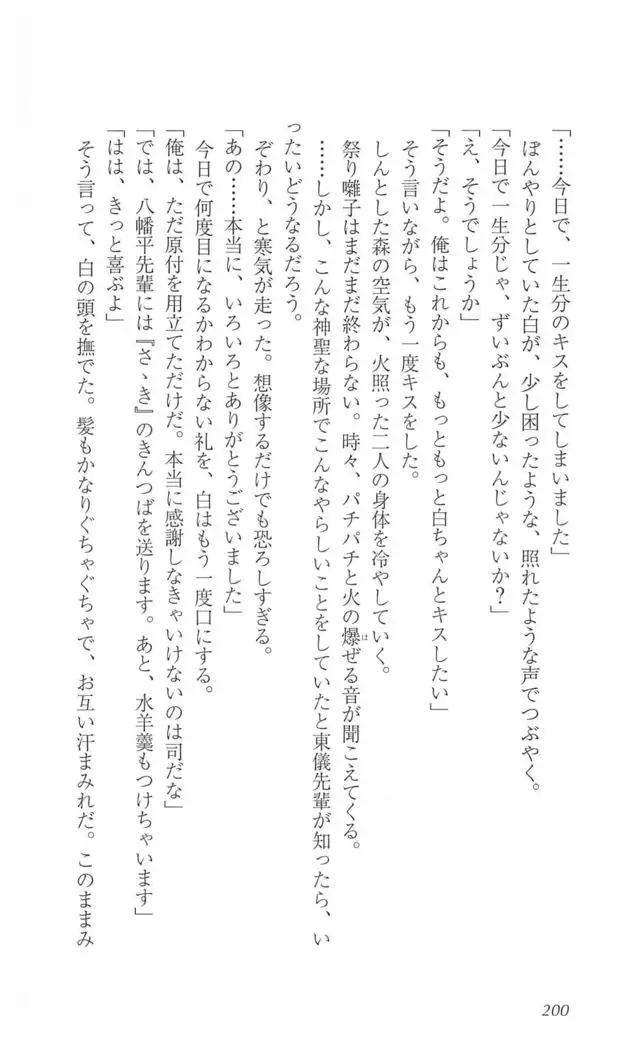 「……今日で、一生分のキスをしてしまいました」
　ぼんやりとしていた白が、少し困ったような、照れたような声でつぶやく。
「今日で一生分じゃ、ずいぶんと少ないんじゃないか？」
「え、そうでしょうか」
「そうだよ。俺はこれからも、もっともっと白ちゃんとキスしたい」
　そう言いながら、もう一度キスをした。
　しんとした森の空気が、火照った二人の身体を冷やしていく。
　祭り囃子はまだまだ終わらない。時々、パチパチと火の爆ぜる音が聞こえてくる。
は
　……しかし、こんな神聖な場所でこんなやらしいことをしていたと東儀先輩が知ったら、い
ったいどうなるだろう。
　ぞわり、と寒気が走った。想像するだけでも恐ろしすぎる。
「あの……本当に、いろいろとありがとうございました」
　今日で何度目になるかわからない礼を、白はもう一度口にする。
「俺は、ただ原付を用立てただけだ。本当に感謝しなきゃいけないのは司だな」
「では、八幡平先輩には『さゝき』のきんつばを送ります。あと、水羊羹もつけちゃいます」
「はは、きっと喜ぶよ」
　そう言って、白の頭を撫でた。髪もかなりぐちゃぐちゃで、お互い汗まみれだ。このままみ
200